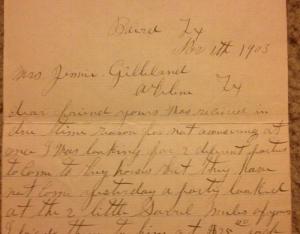 Baird Tx
Nov 11th 1903
Mrs Jennie Gilleland
Abilene Tx
dear friend yours was recieved in
due time reason for not answering at
once I was looking for 2 diferent parties
to Come to buy horses but they have
not come yesterday a party looked
at the 2 little Sorrel mules of yours
I him at each